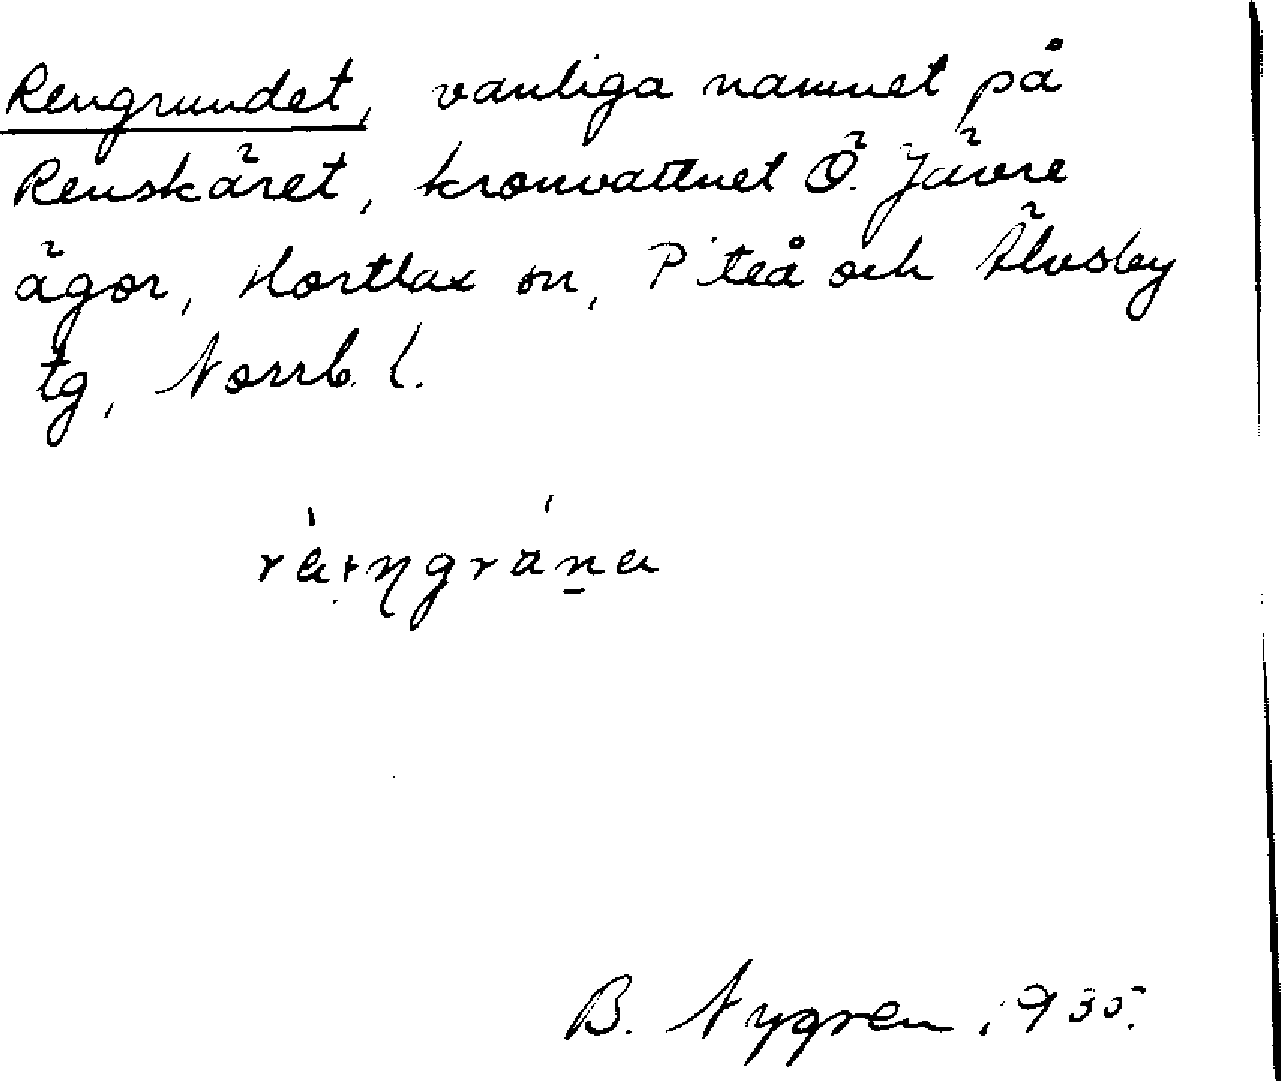 Rengrundet, vanliga namnet på
Renskäret, kronvattnet Ö. Jävre
ägor, Hortlax sn, Piteå och Älvsby
tg, Norrb. l.
B. Nygren 1935.